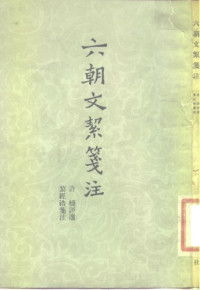 六朝文絜箋注
許槤評選
黎經誥箋注
六朝文絜箋注